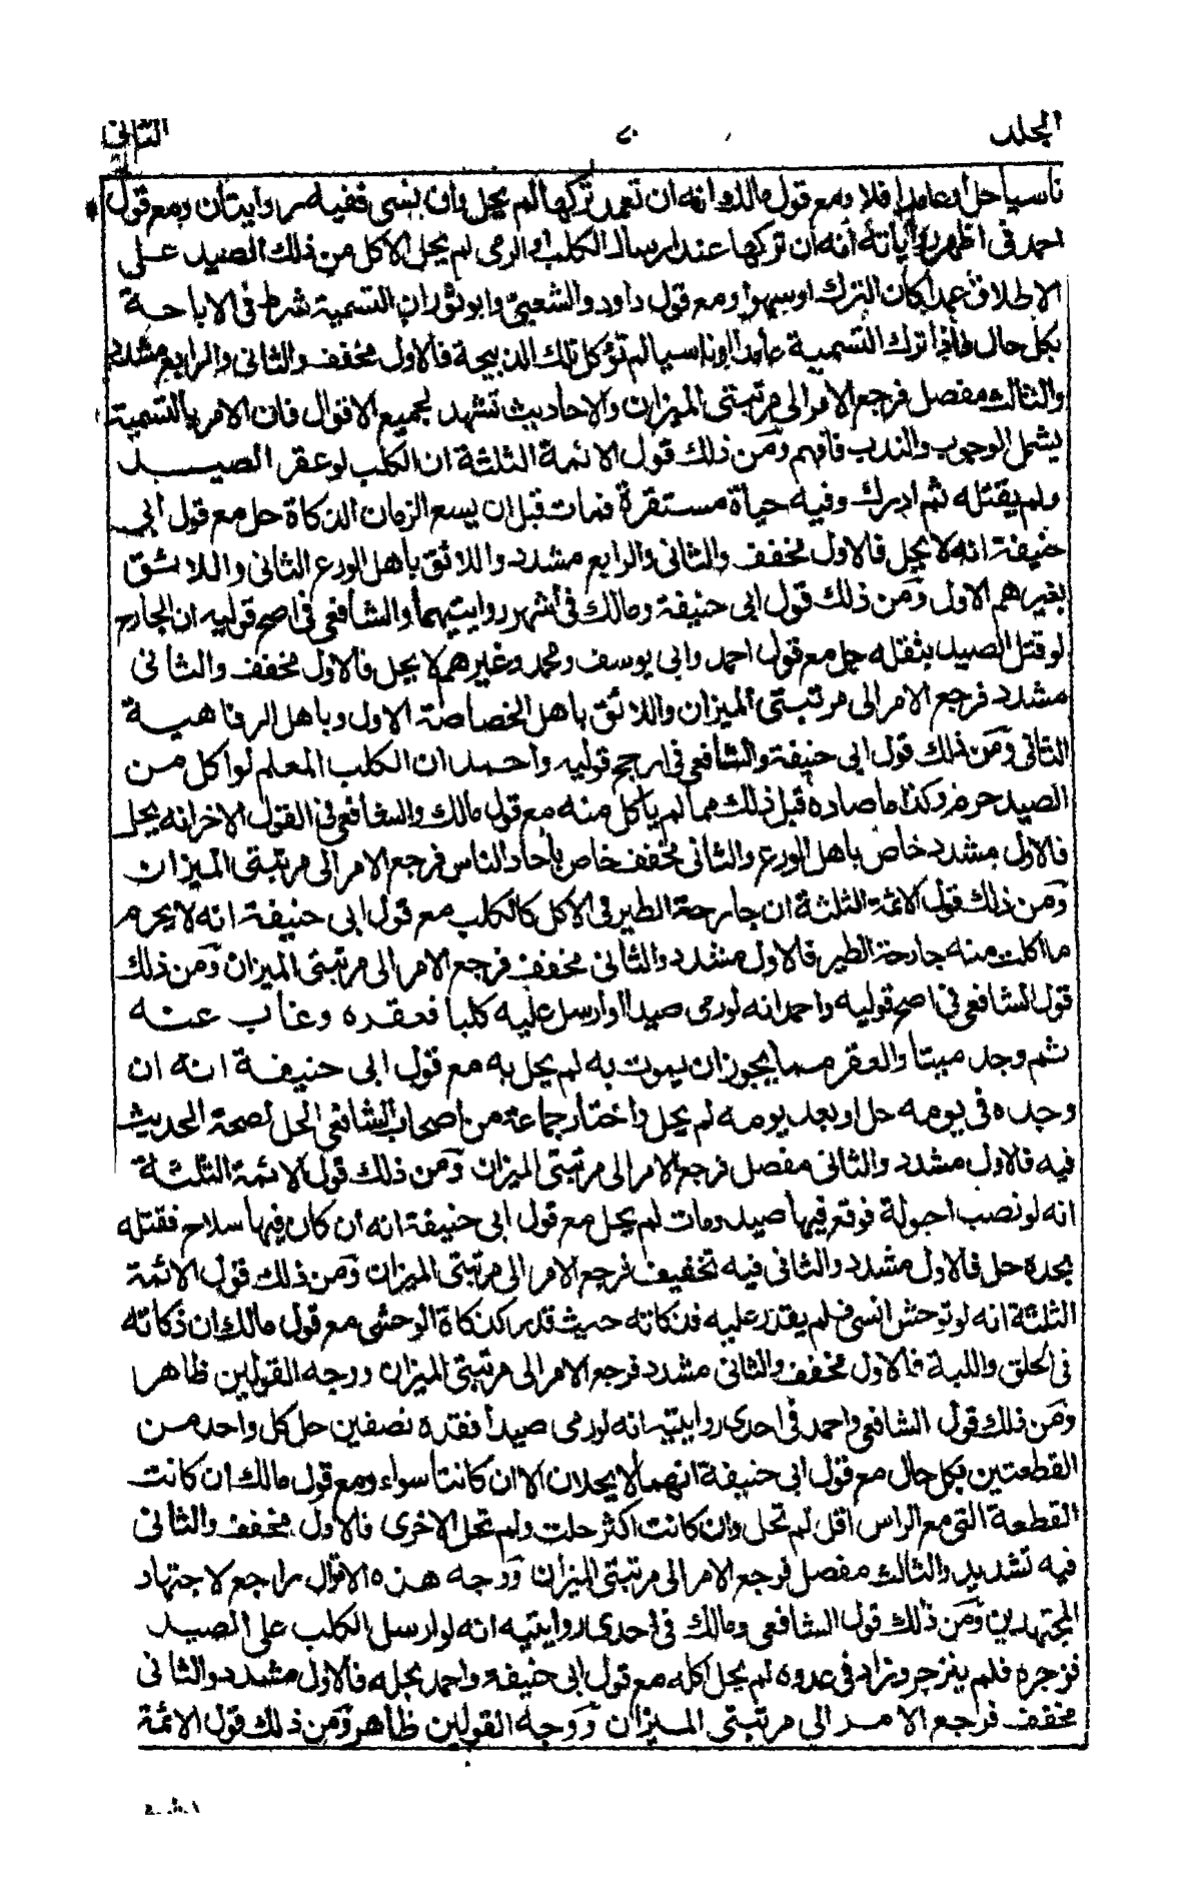 المجلد ٧٠ الثاني
ناسيا حل أو عامدا فلا ومع قول مالك وانه ان تعمد تركها لم يحل وان نسى ففيه روايتان ومع قول
احمد فى اظهر رواياته أنه ان تركها عند ارسال الكلب او الرمى لم يحل الاكل من ذلك الصيد على
الاطلاق عمدا كان الترك او سهوا ومع قول داود والشعبى وابو ثور ان التسمية شرط فى الاباحة
بكل حال فاذا ترك التسمية عامدا او ناسيا لم تؤكل تلك الذبيحة فالاول مخفف والثانى والرابع مشدد
والثالث مفصل فرجع الامر الى مرتبتى الميزان والاحاديث تشهد لجميع الاقوال فان الامر بالتسمية
يشمل الوجوب والندب فافهم ومن ذلك قول الائمة الثلثة ان الكلب لو عقر الصيد
ولم يقتله ثم ادرك وفيه حياة مستقرة فمات قبل ان يسع الزمان الذكاة حل مع قول ابى
حنيفة انه لا يحل فالاول مخفف والثانى والرابع مشدد واللائق باهل الورع الثانى واللائق
بغيرهم الاول ومن ذلك قول ابى حنيفة ومالك فى أشهر روايتيهما والشافعى فى اصح قوليه ان الجارح
لو قتل الصيد بثقله حل مع قول احمد وابى يوسف ومحمد وغيرهم لا يحل فالاول مخفف والثانى
مشدد فرجع الامر الى مرتبتى الميزان واللائق باهل الخصاصة الاول وباهل الرفاهية
الثانى ومن ذلك قول ابى حنيفة والشافعى فى ارجح قوليه واحمد ان الكلب المعلم لو اكل من
الصيد حرم وكذا ما صاده قبل ذلك مما لم ياكل منه مع قول مالك والشافعى فى القول الاخر انه يحل
فالاول مشدد خاص باهل الورع والثانى مخفف خاص بأحاد الناس فرجع الامر الى مرتبتى الميزان
ومن ذلك قول الائمة الثلثة ان جارحة الطير فى الاكل كالكلب مع قول ابى حنيفة انه لا يحرم
ما اكلت منه جارحة الطير فالاول مشدد والثانى مخفف فرجع الامر الى مرتبتى الميزان ومن ذلك
قول الشافعى فى اصح قوليه واحمد انه لو رمى صيدا او ارسل عليه كلبا فعقره وغاب عنه
ثم وجد ميتا والعقر مما يجوز ان يموت به لم يحل به مع قول ابى حنيفة انه ان
وجده فى يومه حل او بعد يومه لم يحل واختار جماعة من اصحاب الشافعى الحل لصحة الحديث
فيه فالاول مشدد والثانى مفصل فرجع الامر الى مرتبتى الميزان ومن ذلك قول الائمة الثلثة
انه لو نصب احبولة فوقع فيها صيد ومات لم يحل مع قول ابى حنيفة انه ان كان فيها سلاح فقتله
بحده حل فالاول مشدد والثانى فيه تخفيف فرجع الامر الى مرتبتى الميزان ومن ذلك قول الائمة
الثلثة انه لو توحش انسى فلم يقدر عليه فذكاته حيث قدر كذكاة الوحشى مع قول مالك ان ذكاته
فى الحلق واللبة فالاول مخفف والثانى مشدد فرجع الامر الى مرتبتى الميزان ووجه القولين ظاهر
ومن ذلك قول الشافعى واحمد فى احدى روايتيه انه لو رمى صيدا فقده نصفين حل كل واحد من
القطعتين بكل حال مع قول ابى حنيفة انهما لا يحلان الا ان كانتا سواء ومع قول مالك ان كانت
القطعة التى مع الراس اقل لم تحل وان كانت اكثر حلت ولم تحل الاخرى فالاول مخفف والثانى
فيه تشديد والثالث مفصل فرجع الامر الى مرتبتى الميزان ووجه هذه الاقوال راجع لاجتهاد
المجتهدين ومن ذلك قول الشافعى ومالك فى احدى روايتيه انه لو ارسل الكلب على الصيد
فزجره فلم ينزجر وزاد فى عدوه لم يحل اكله مع قول ابى حنيفة واحمد بحله فالاول مشدد والثانى
مخفف فرجع الامر الى مرتبتى الميزان ووجه القولين ظاهر ومن ذلك قول الائمة